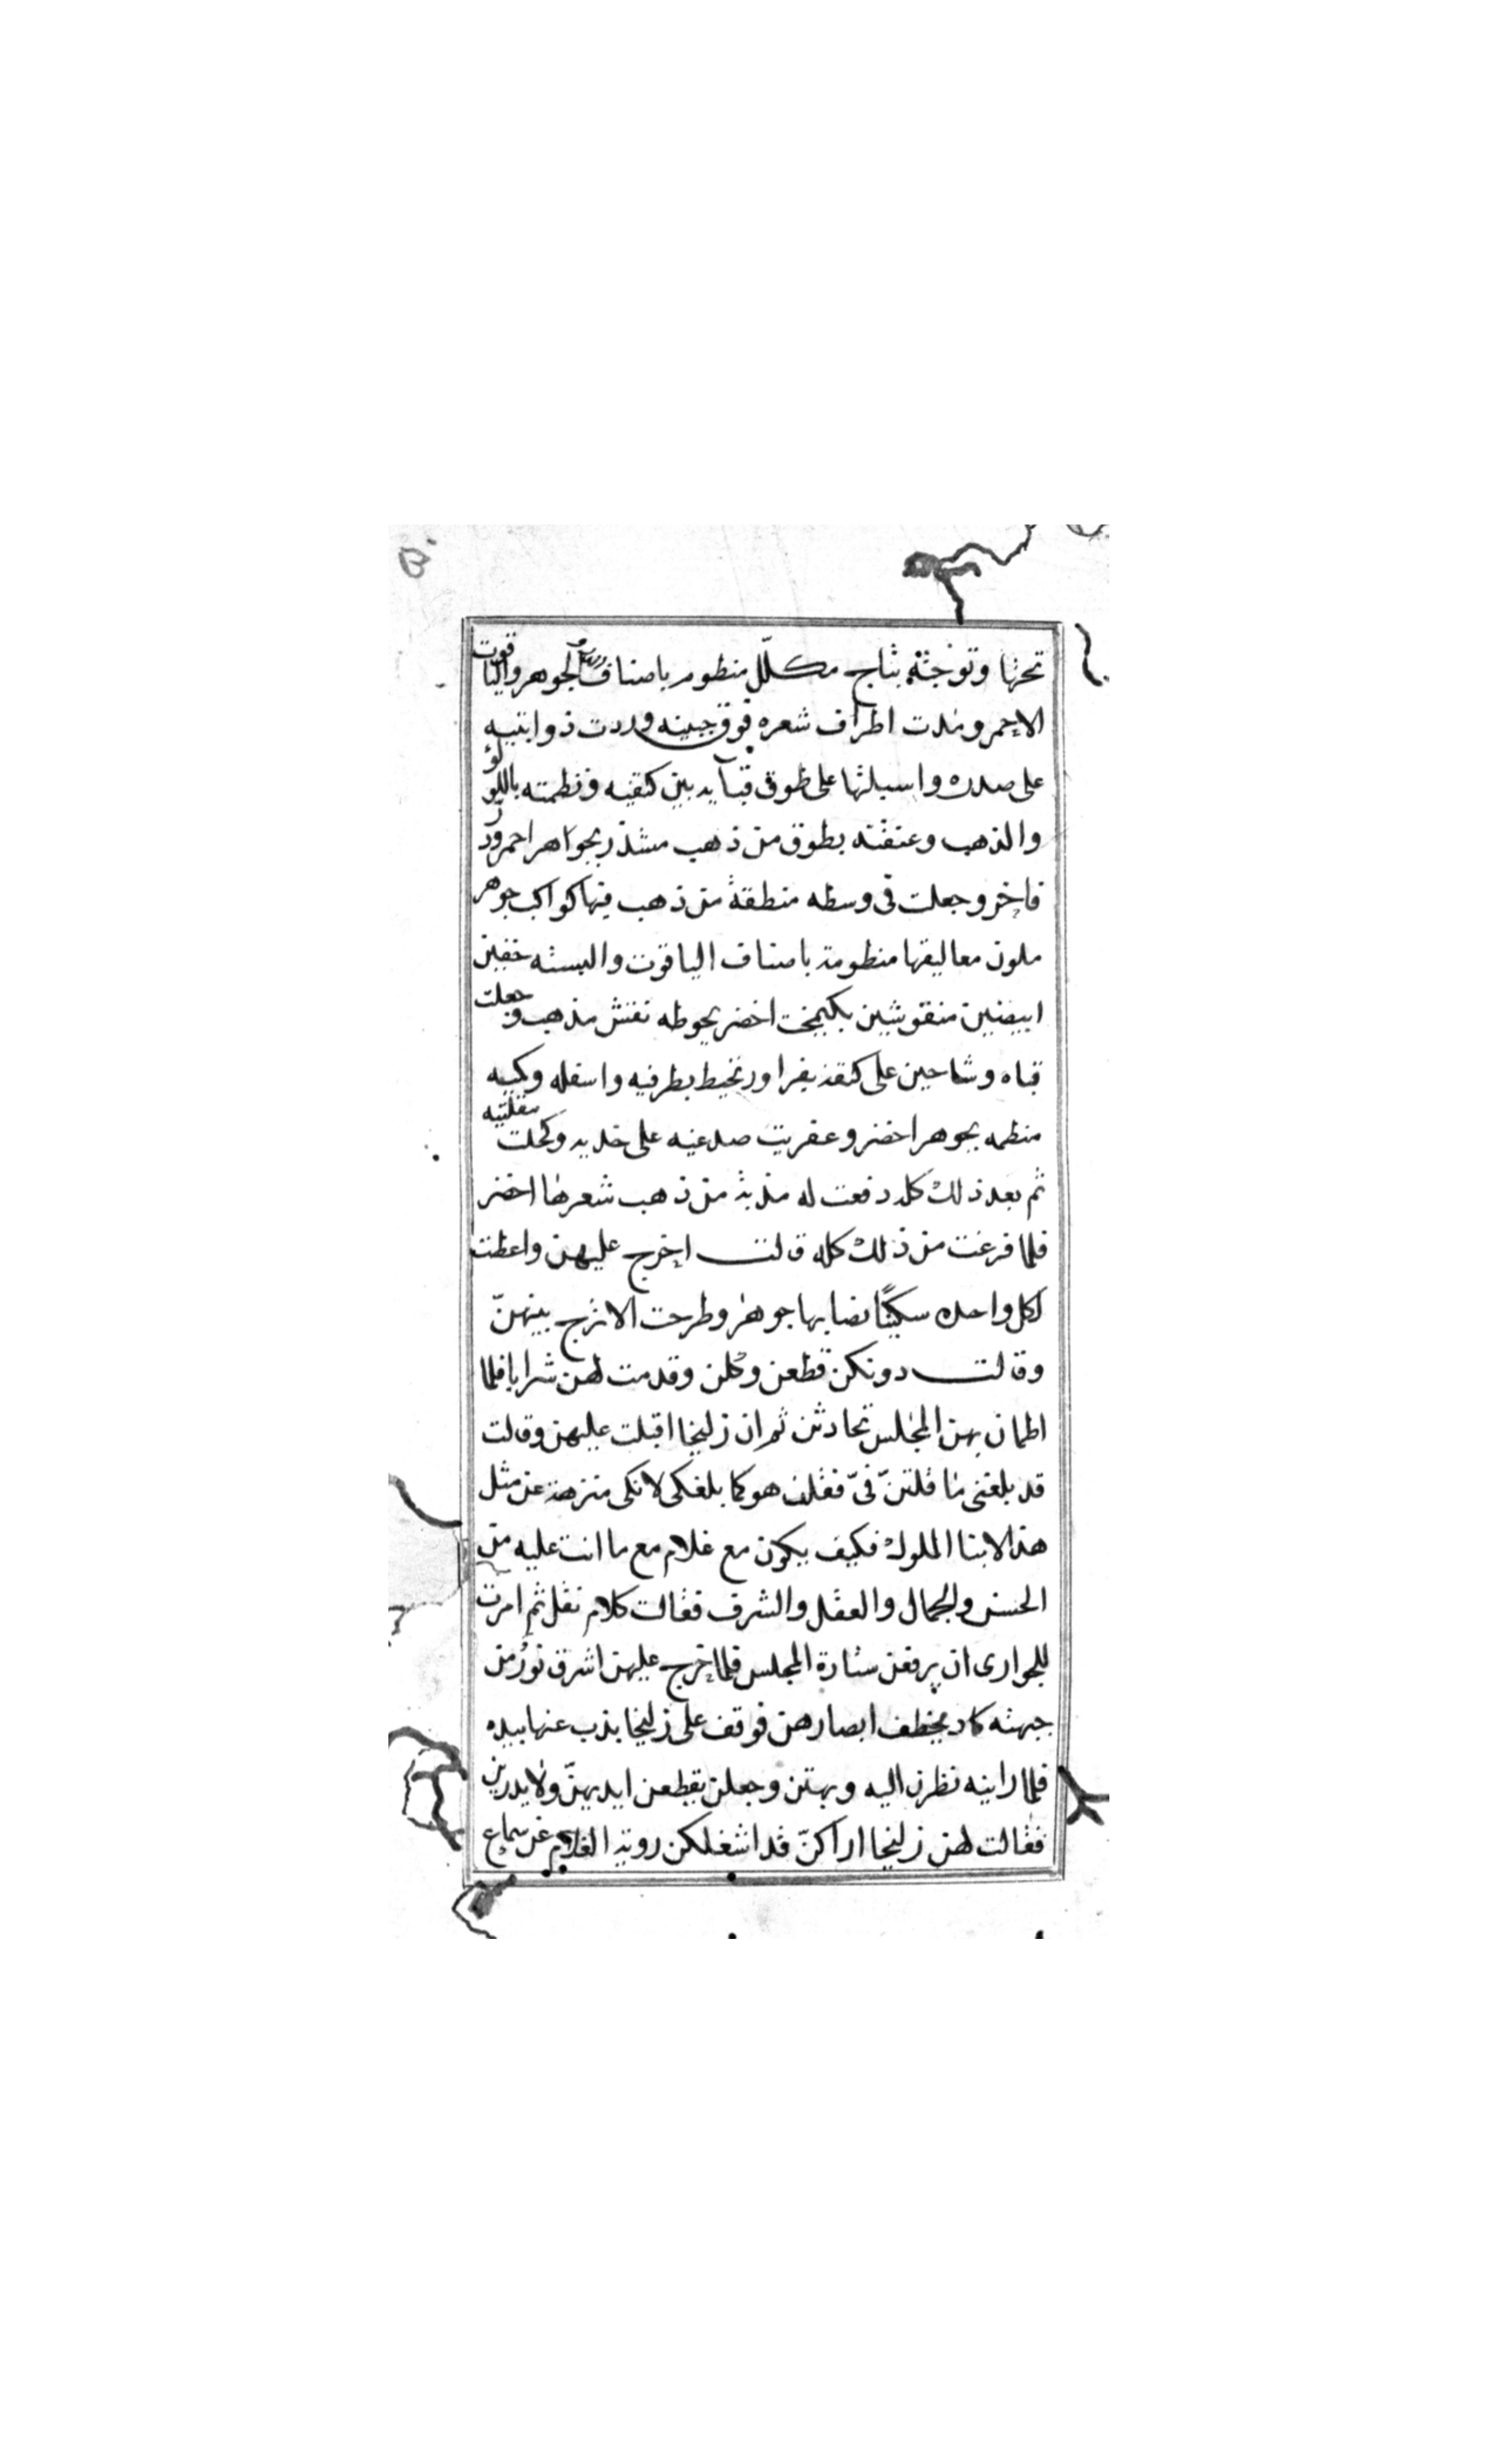 تحرنا وتوجته بتاج مكلّل منظوم باصناف الجوهر والياقوت
الاحمر ومدت اطراف شعره فوق جبينه وردت ذوابتيه
على صدره واسبلتها على طوق قبآيه بين كتفيه ونظمته باللولو
والذهب وعنقته بطوق من ذهب مشذر بجواهر احمر ودر
فاخر وجعلت فى وسطه منطقة من ذهب فيها كواكب جوهر
ملون معاليقها منظومة باصناف الياقوت والبسته خفين
ابيضين منقوشين بكيمخت اخضر يحوطه نقش مذهب وجعلت
قباه وشاحين على كتفه يحيط بطرفيه واسفله وكميه
منظمه بجوهر اخضر وعقربت صدغيه على خديه وكحلت مقلتيه
ثم بعد ذلك كله دفعت له مذبة من ذهب شعرها اخضر
فلما فرغت من ذلك كله قالت اخرج عليهن واعطت
لكل واحده سكينًا نصابها جوهر وطرحت الاترج بينهنّ
وقالت دونكن قطعن وكلن وقدمت لهن شرابا فلما
اطمان بهن المجلس تحادثن ثم ان زليخا اقبلت عليهن وقالت
قد بلغنى ما قلتنّ فىّ فقلن هو كما بلغكى لانكى منزهة عن مثل
هذا لابنا الملوك فكيف يكون مع غلام مع ما انت عليه من
الحسن والجمال والعقل والشرف فقالت كلام نقل ثم امرت
للجوارى ان يرفعن ستارة المجلس فلما خرج عليهن اشرق نورٌ من
جبهته كاد يخطف ابصارهن فوقف على زليخا يذب عنها بيده
فلما راينه نظرن اليه وبهتن وجعلن يقطعن ايديهنّ ولا يدرين
فقالت لهن زليخا اراكنّ قد اشغلكن روية الغلام عن سماع